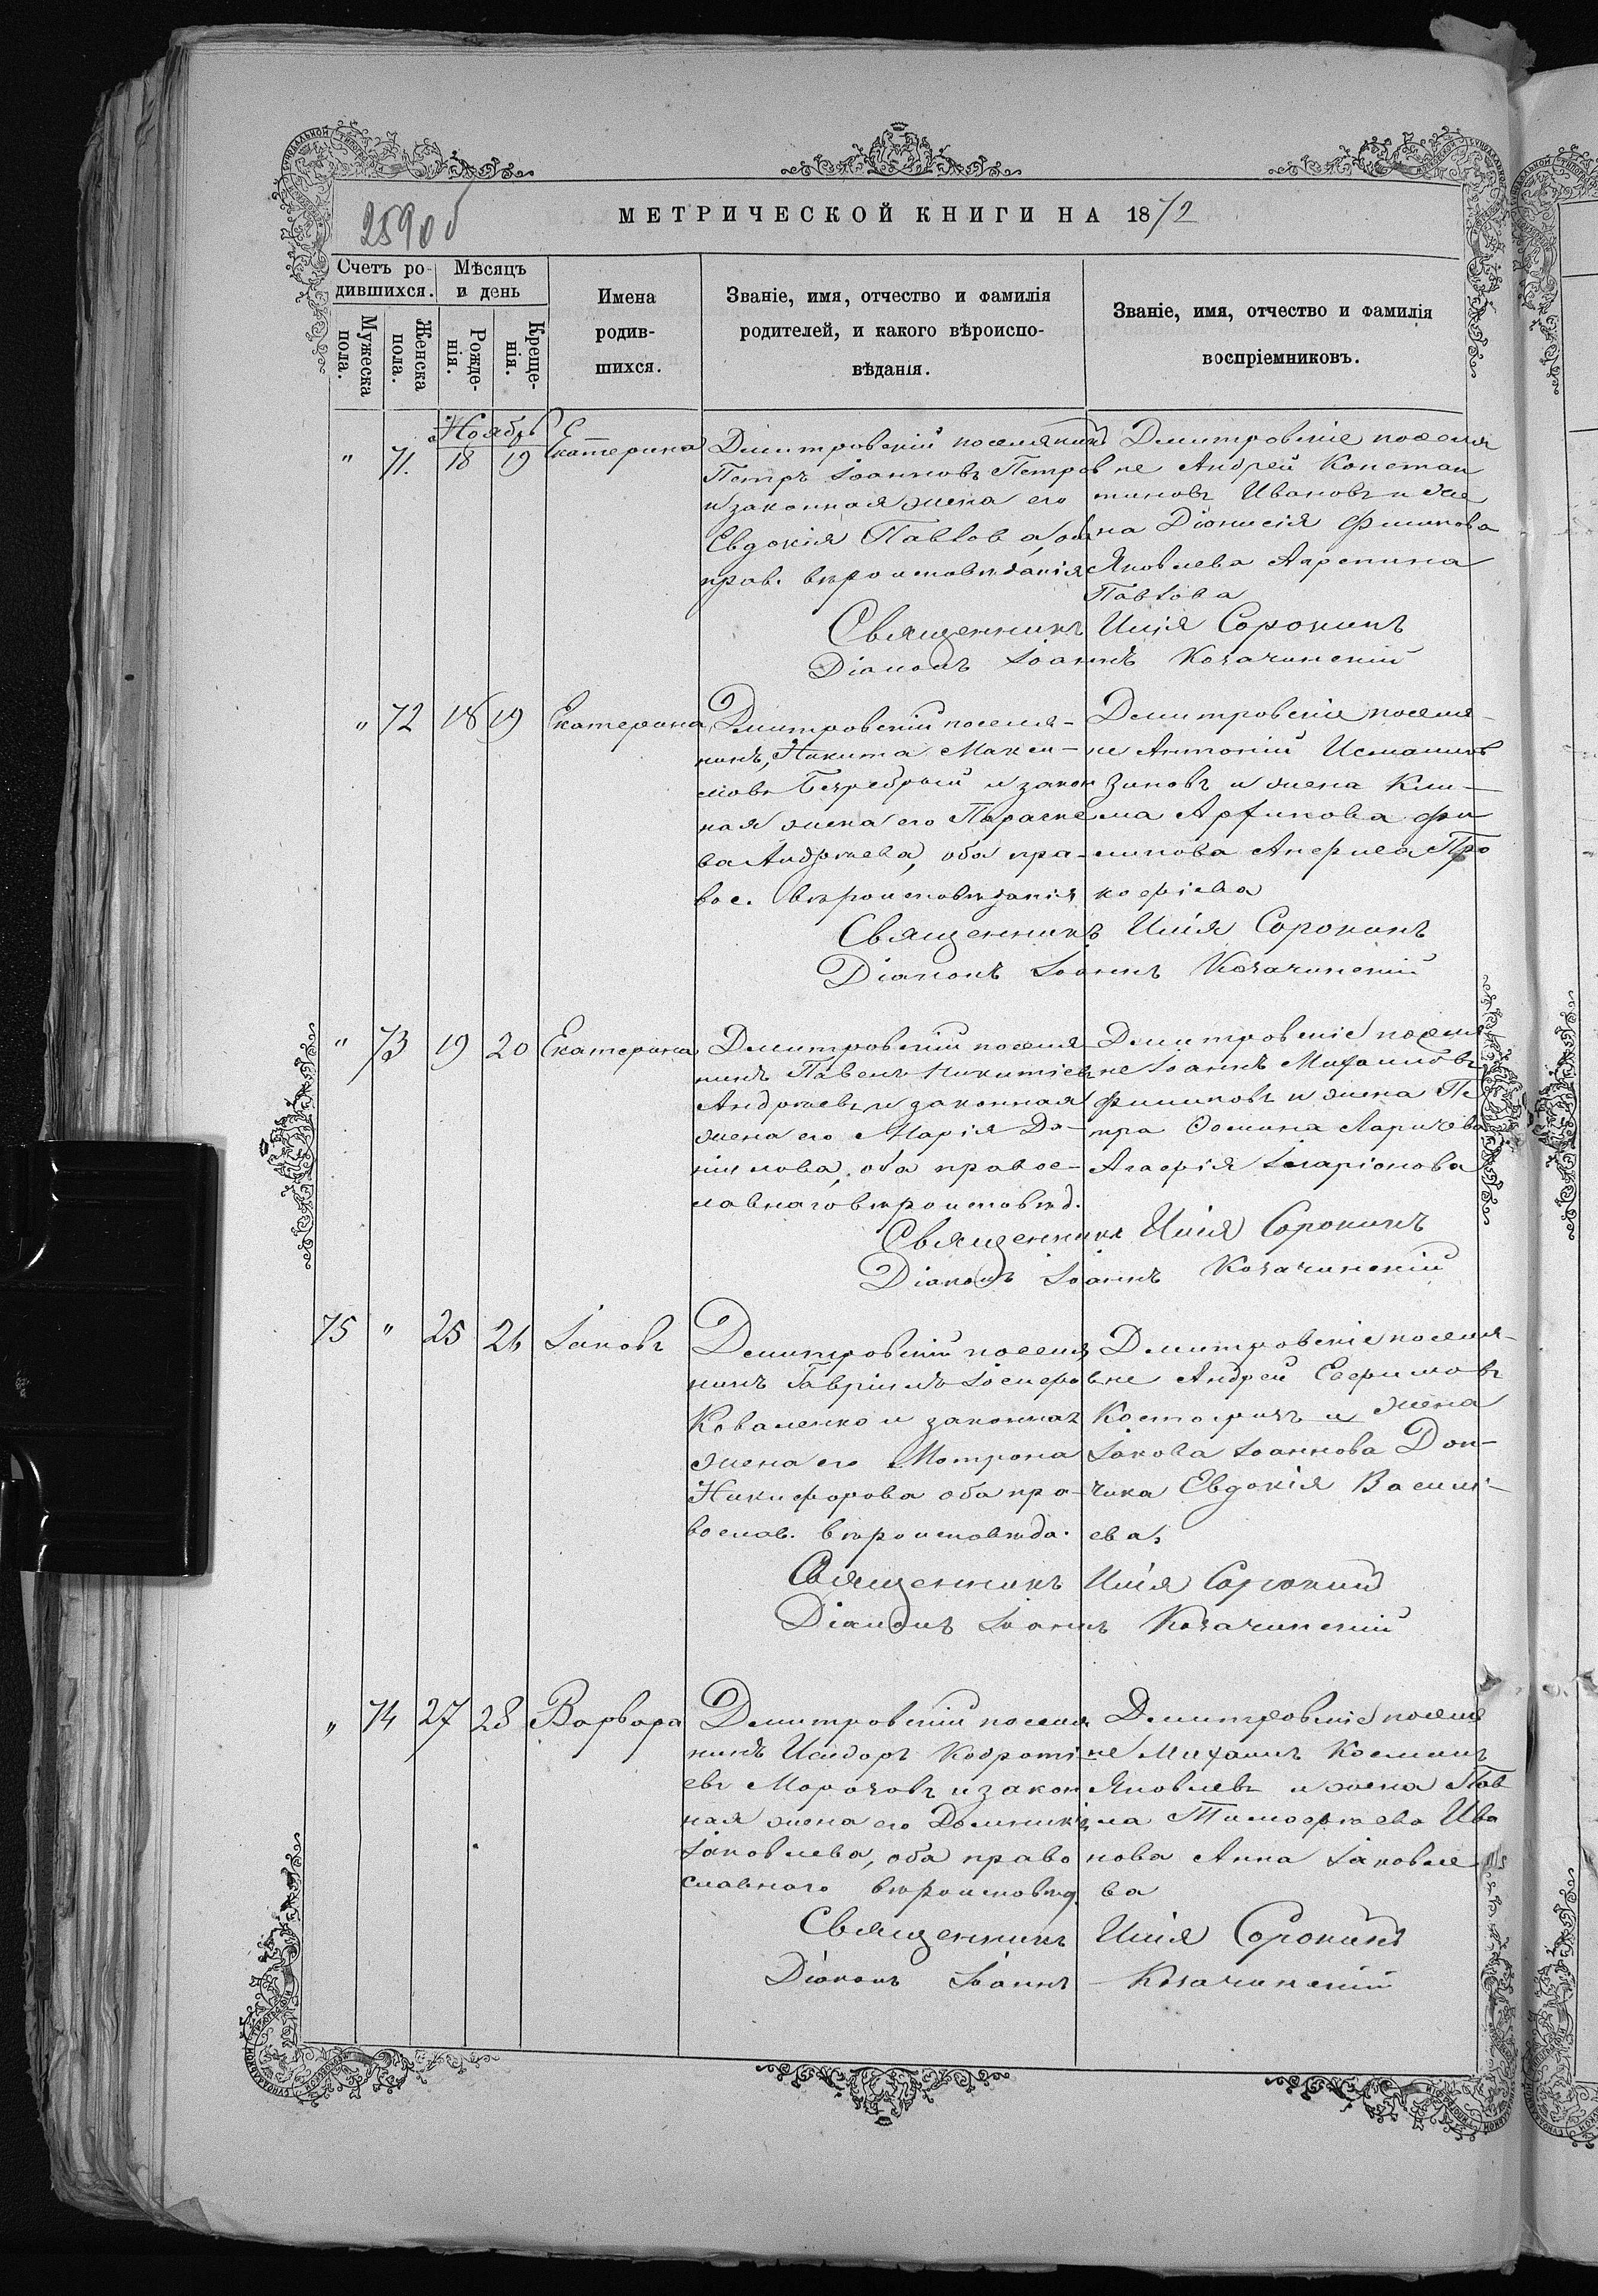 2590 об
МЕТРИЧЕСКОЙ КНИГИ НА 1872
Счетъ ро-
дившихся.
Мѣсяцъ
и день
Мужеска
пола.
Женска
пола.
Рожде-
нія.
Креще-
нія.
Имена
родив-
шихся.
Званіе, имя, отчество и фамилія
родителей, и какого вѣроиспо-
вѣданія.
Званіе, имя, отчество и фамилія
воспріемниковъ.
Ноябрь
" 71. 18 19 Екатерина
Дмитровскій поселянинъ
Петръ Іоанновъ Петровъ
и законная жена его
Евдокія Павлова, оба
прав. вѣроисповѣданія
Дмитровскіе поселя
не Андрей Констан
тиновъ Ивановъ и же
на Діонисія Филипова
Яковлева Агрепина
Павлова
Священникъ Илія Сорокинъ
Діаконъ Іоаннъ Козачинскій
" 72 18 19 Екатерина
Дмитровскій поселя-
нинъ, Никита Макси-
мовъ Безребрый и закон
ная жена его Параске
ва Андреева, оба пра-
вос. вѣроисповѣданія
Дмитровскіе поселя-
не Антоній Исмаиловъ
Зиновъ и жена Кли-
ма Филипова Про
кофіева
Священникъ Илія Сорокинъ
Діаконъ Іоаннъ Козачинскій
" 73 19 20 Екатерина
Дмитровскій поселя
нинъ Павелъ Никитіевъ
Андреевъ и законная
жена его Марія Да-
ніилова, оба правос-
лавнаго вѣроисповѣд.
Дмитровскіе поселя
не Іоаннъ Михаиловъ
Филиповъ и жена Пе
тра Ларичева
Агафія Іларіонова
Священникъ Илія Сорокинъ
Діаконъ Іоаннъ Козачинскій
75 " 25 26 Іаковъ
Дмитровскій поселя
нинъ Гавріилъ Іосифовъ
Коваленко и законная
жена его Мотрона
Никифорова оба пра-
вослав. вѣроисповѣда.
Дмитровскіе поселя-
не Андрей Ефримовъ
и жена
Іакова Іоаннова Дон-
чика Евдокія Василі-
ева.
Священникъ Илія Сорокинъ
Діаконъ Іоаннъ Козачинскій
" 74 27 28 Варвара
Дмитровскій поселя
нинъ Исидоръ Кодраті-
евъ Морозовъ и закон
ная жена его Домникія
Іаковлева, оба право
славнаго вѣроисповѣд.
Дмитровскіе поселя
не Михаилъ Косминъ
Яковлевъ и жена Пав
ла Тимофеева Ива
нова Анна Іаковле
ва
Священникъ Илія Сорокинъ
Діаконъ Іоаннъ Козачинскій